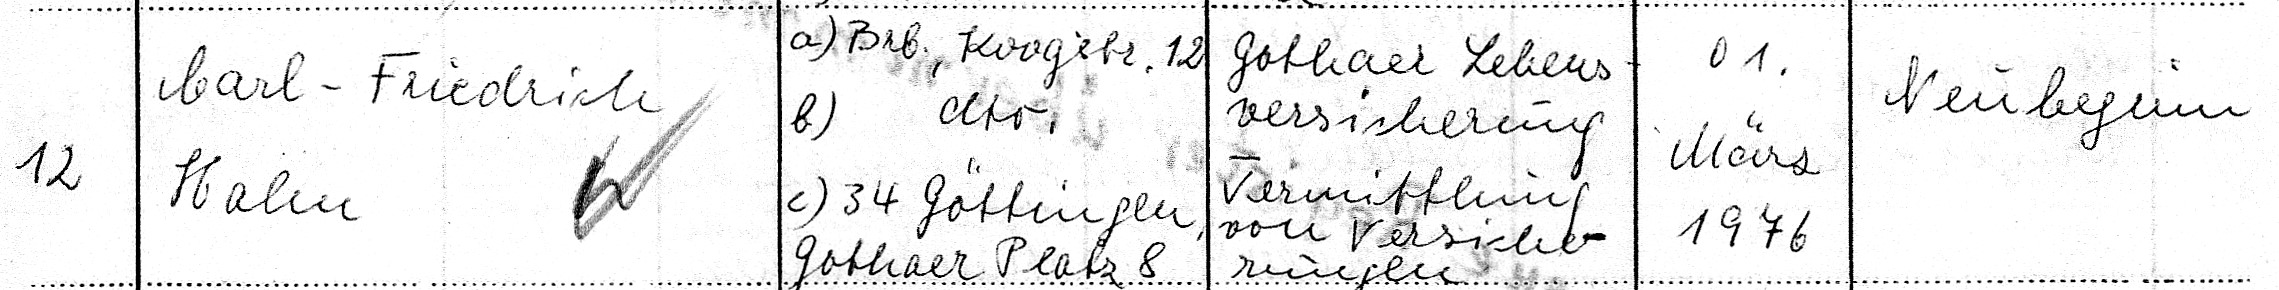 12
Carl-Friedrich
Hahn
a) Brb., Koogstr. 12
b) dto.
c) 34 Göttingen,
Gothaer Platz 8
Gothaer Lebens-
versicherung
- Vermittlung
von Versiche-
rungen
01.
März
1976
Neubeginn